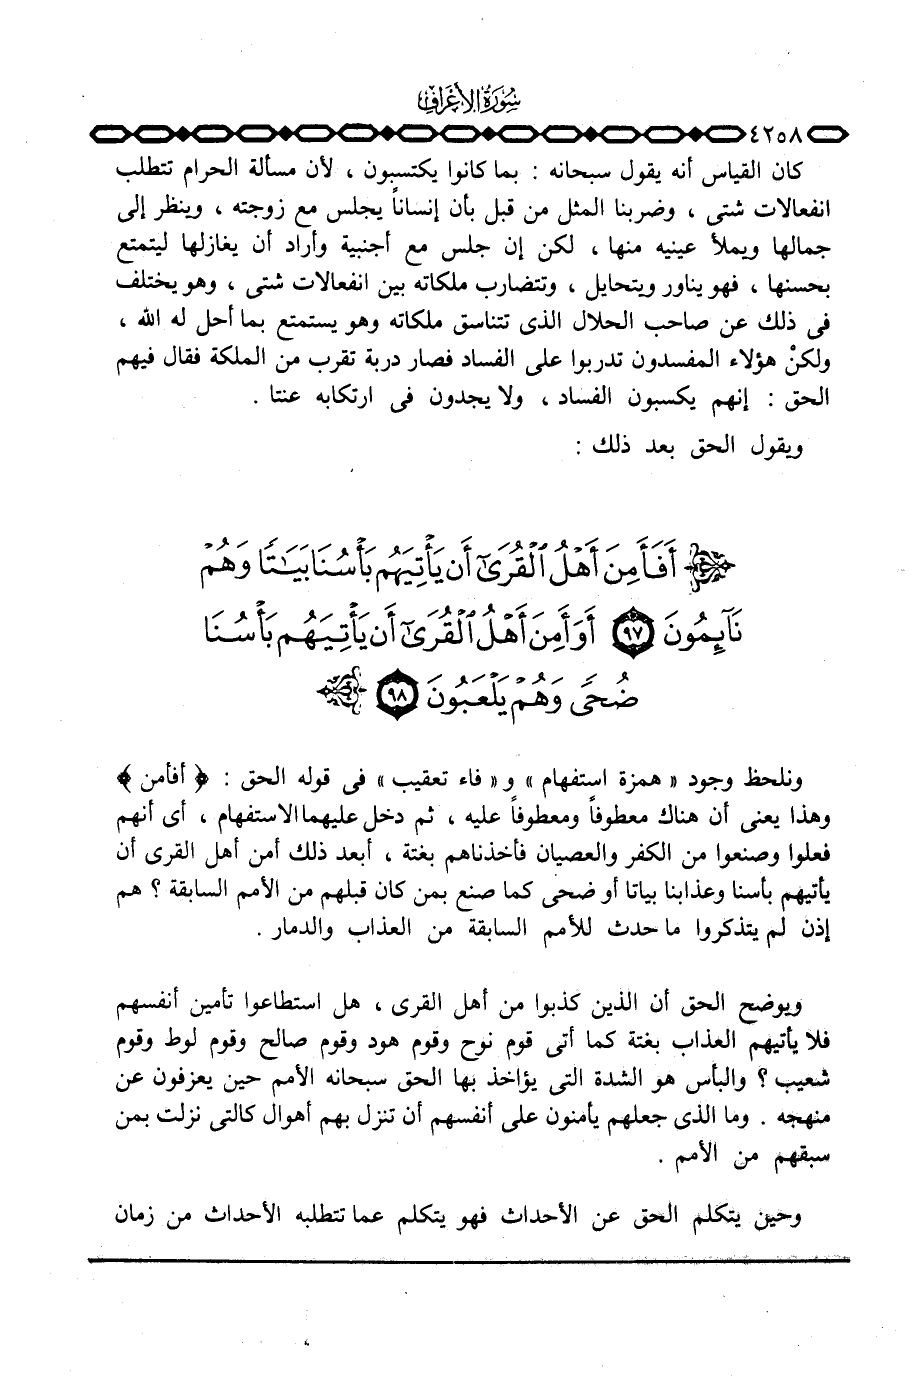 سُورَةُ الأَعْرَافِ
٤٢٥٨
كان القياس أنه يقول سبحانه : بما كانوا يكتسبون ، لأن مسألة الحرام تتطلب
انفعالات شتى ، وضربنا المثل من قبل بأن إنساناً يجلس مع زوجته ، وينظر إلى
جمالها ويملأ عينيه منها ، لكن إن جلس مع أجنبية وأراد أن يغازلها ليتمتع
بحسنها ، فهو يناور ويتحايل ، وتتضارب ملكاته بين انفعالات شتى ، وهو يختلف
فى ذلك عن صاحب الحلال الذى تتناسق ملكاته وهو يستمتع بما أحل له الله ،
ولكنْ هؤلاء المفسدون تدربوا على الفساد فصار دربة تقرب من الملكة فقال فيهم
الحق : إنهم يكسبون الفساد ، ولا يجدون فى ارتكابه عنتا .
ويقول الحق بعد ذلك :
أَفَأَمِنَ أَهْلُ ٱلْقُرَىٰٓ أَن يَأْتِيَهُم بَأْسُنَا بَيَٰتًا وَهُمْ
نَآئِمُونَ ٩٧ أَوَأَمِنَ أَهْلُ ٱلْقُرَىٰٓ أَن يَأْتِيَهُم بَأْسُنَا
ضُحًى وَهُمْ يَلْعَبُونَ ٩٨
ونلحظ وجود « همزة استفهام » و« فاء تعقيب » فى قوله الحق : ﴿ أفأمن ﴾
وهذا يعنى أن هناك معطوفاً ومعطوفاً عليه ، ثم دخل عليهما الاستفهام ، أى أنهم
فعلوا وصنعوا من الكفر والعصيان فأخذناهم بغتة ، أبعد ذلك أمن أهل القرى أن
يأتيهم بأسنا وعذابنا بياتا أو ضحى كما صنع بمن كان قبلهم من الأمم السابقة ؟ هم
إذن لم يتذكروا ما حدث للأمم السابقة من العذاب والدمار .
ويوضح الحق أن الذين كذبوا من أهل القرى ، هل استطاعوا تأمين أنفسهم
فلا يأتيهم العذاب بغتة كما أتى قوم نوح وقوم هود وقوم صالح وقوم لوط وقوم
شعيب ؟ والبأس هو الشدة التى يؤاخذ بها الحق سبحانه الأمم حين يعزفون عن
منهجه . وما الذى جعلهم يأمنون على أنفسهم أن تنزل بهم أهوال كالتى نزلت بمن
سبقهم من الأمم .
وحين يتكلم الحق عن الأحداث فهو يتكلم عما تتطلبه الأحداث من زمان